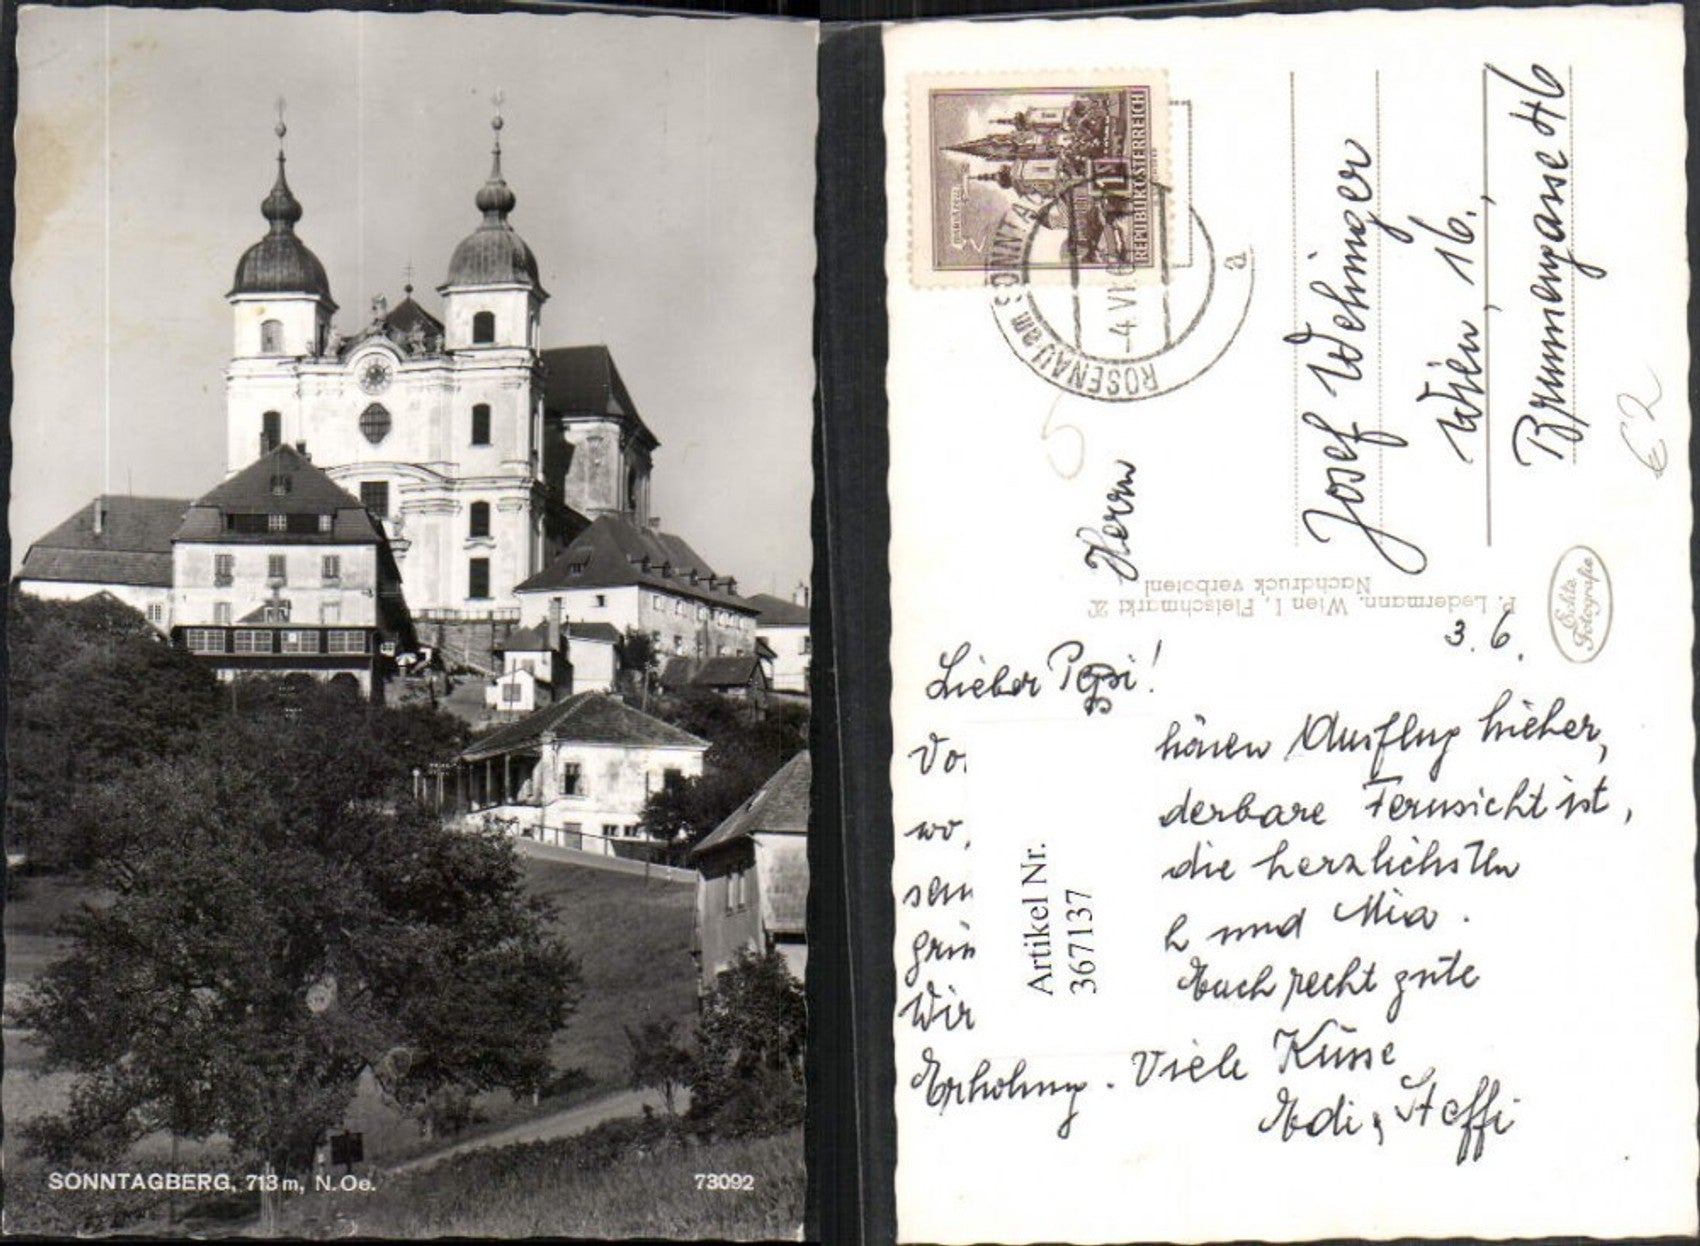 SONNTAGBERG, 713 m, N. Oe.
73092
REPUBLIK ÖSTERREICH
ROSENAU am SONNTA
-4. VI.
a
Herrn
Josef Wehinger
Wien, 16.,
Brunnengasse 46
€ 2
P. Ledermann, Wien I, Fleischmarkt 20
Nachdruck verboten!
Echte
Fotografie
3. 6.
Lieber Pepsi!
Vo hönen Ausflug hieher,
wo, derbare Fernsicht ist,
sen die herzlichsten
grü h und Mia.
Wir Euch recht gute
Erholung. Viele Küsse
Edi, Steffi
Artikel Nr.
367137